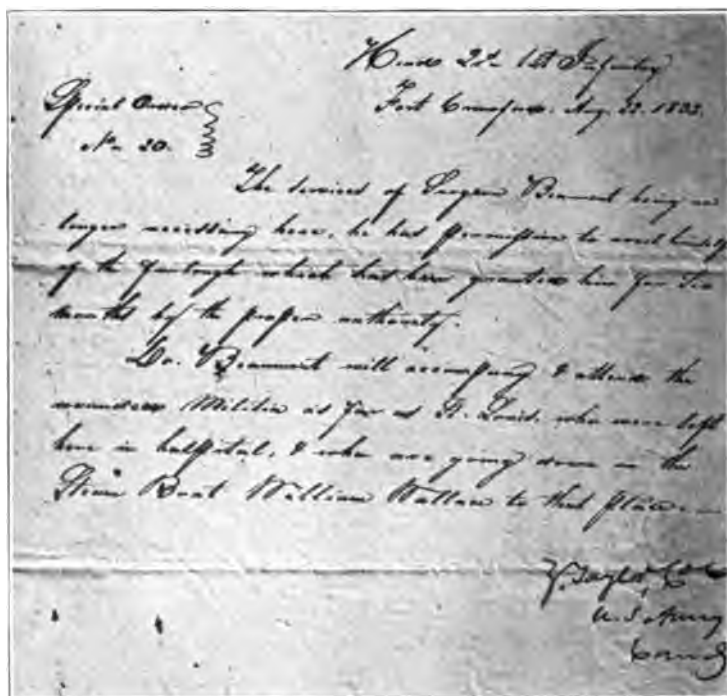 Head Qrs. 1st Infantry
Fort Crawford. Aug. 22. 1832.
Special Order
No 20.
The services of Surgeon Beaumont being no
longer necessary here, he has permission to avail himself
of the furlough which has been granted him for six
months by the proper authority.
Dr. Beaumont will accompany & attend the
wounded Militia as far as St. Louis, who were left
here in hospital, & who are going down in the
Steam Boat William Wallace to that place.
Z. Taylor, Col
U.S. Army
Comdg